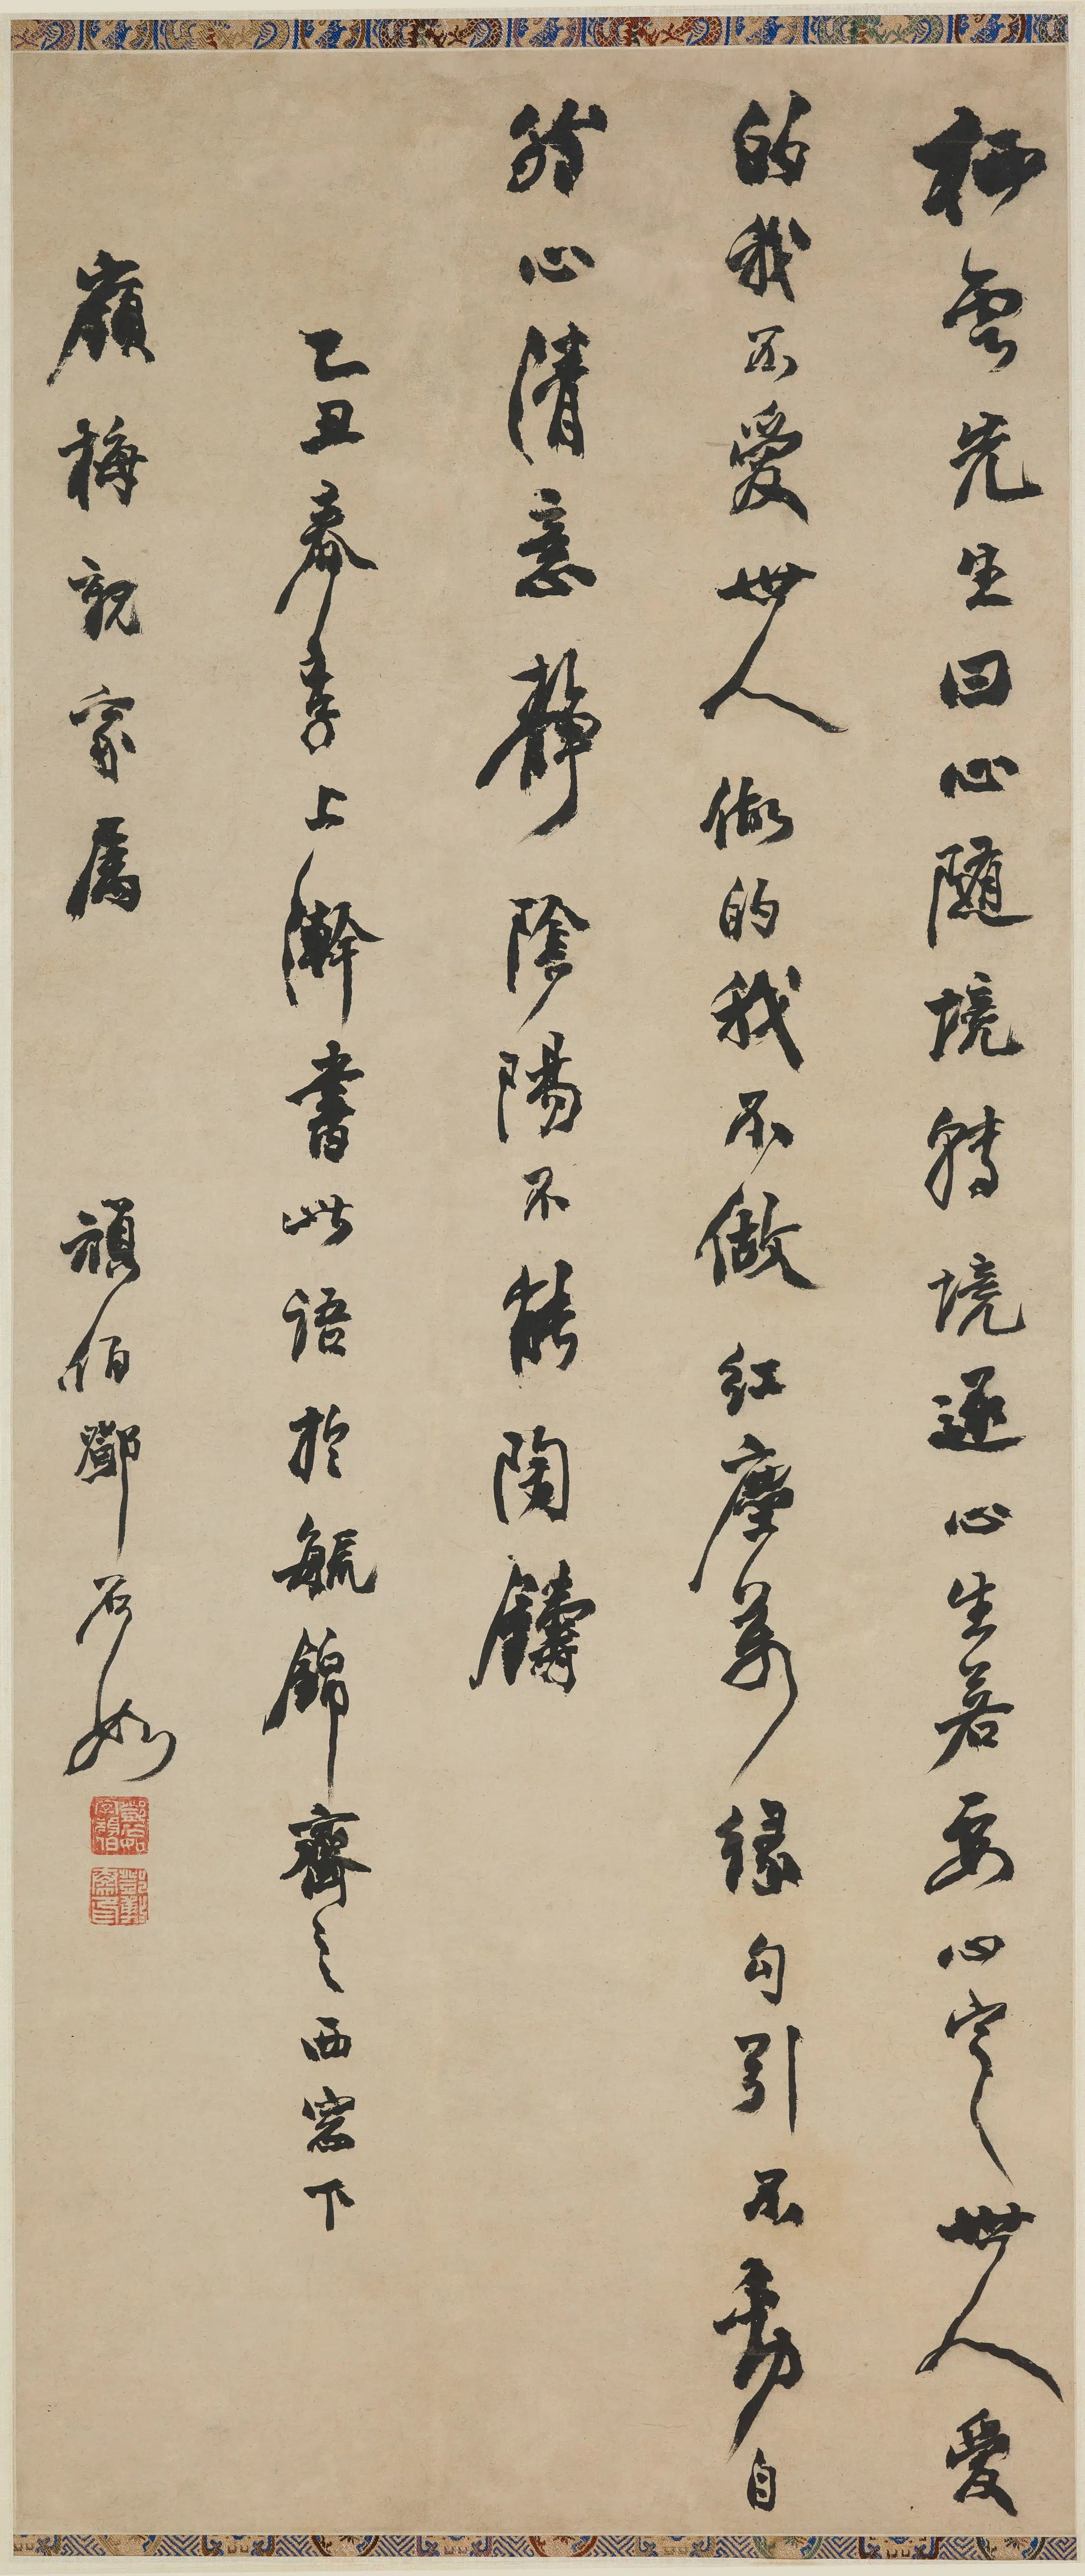 栖雲先生曰心隨境轉境逐心生若要心定世人愛
的我不愛世人做的我不做紅塵萬緣勾引不動自
然心清意靜陰陽不能陶鑄
乙丑春季上澣書此語於毓錦齋之西窗下
嶺梅親家屬 頑伯鄧石如